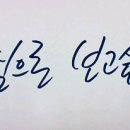 심으로 보고